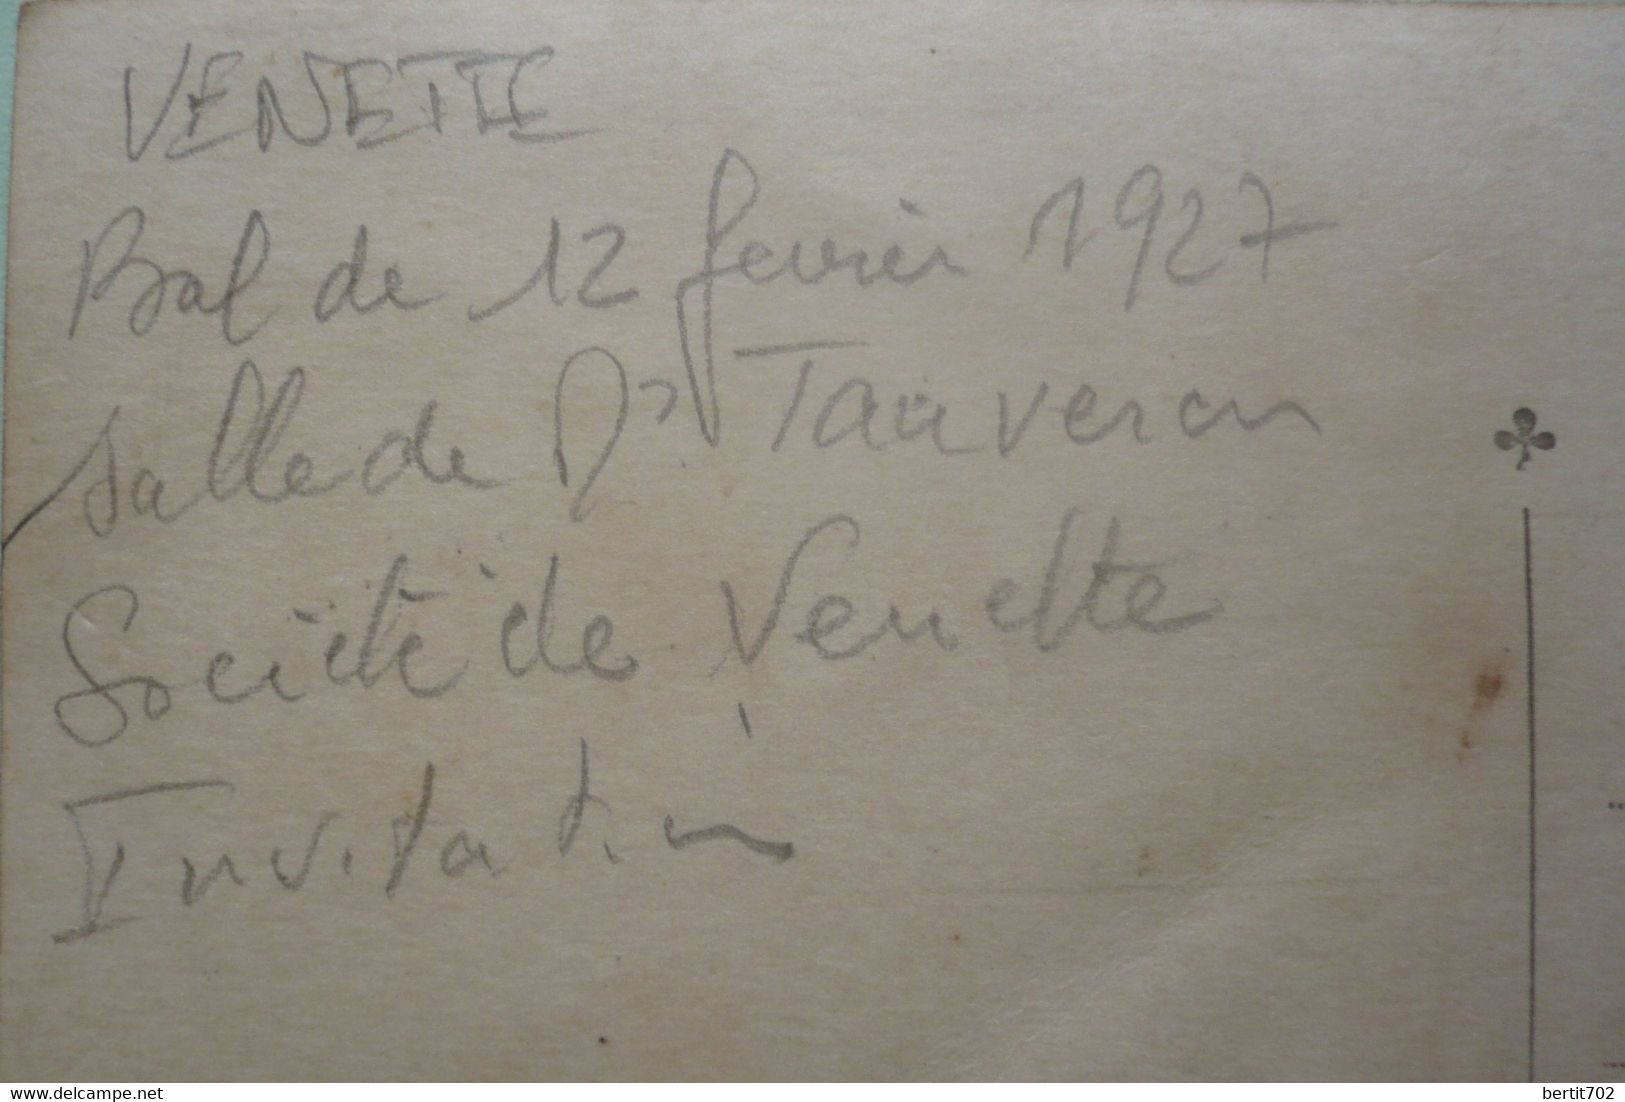 VENETTE
Bal de 12 fevrier 1927
salle de Mr Tauveron
Société de Venette
Invitation
www.delcampe.net
bertit702